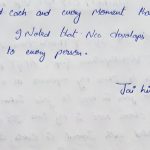 each and every moment
I Noted that Ncc develops
to every person.
Jai hi